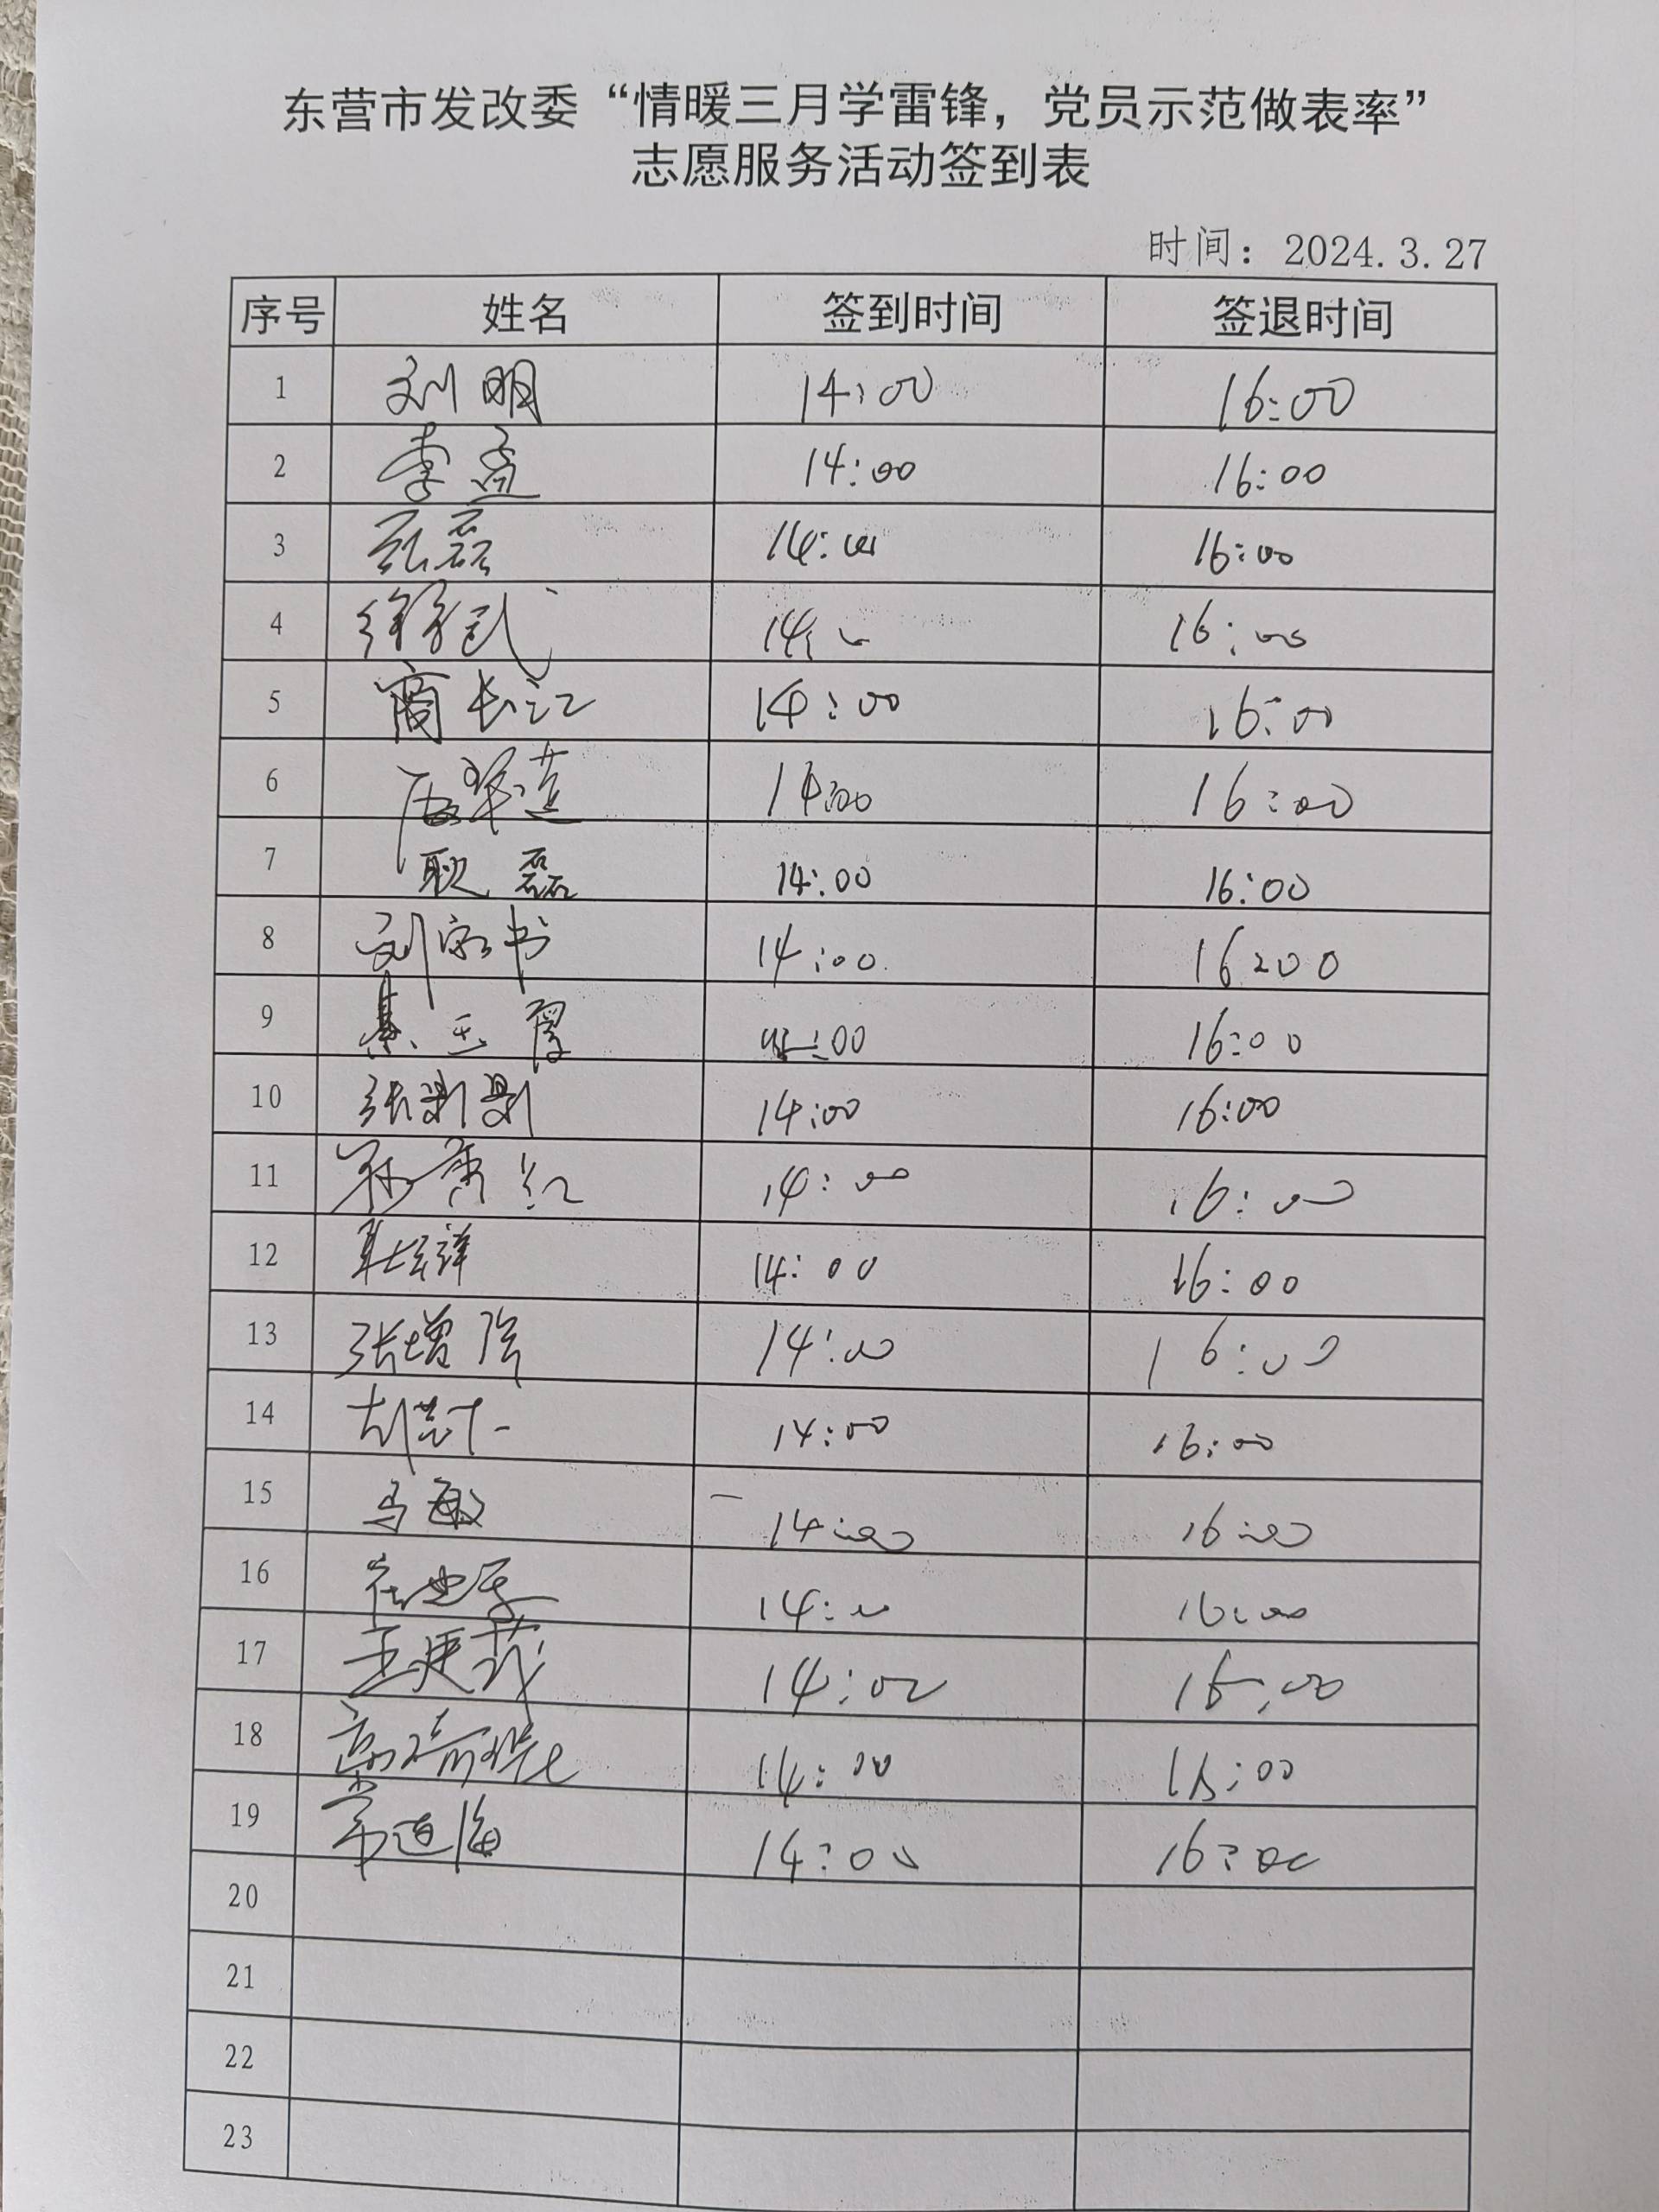 东营市发改委“情暖三月学雷锋，党员示范做表率”
志愿服务活动签到表
时间：2024.3.27
序号 姓名 签到时间 签退时间
1 刘明 14:00 16:00
2 李孟 14:00 16:00
3 张磊 14:00 16:00
4 14: 16:00
5 商长江 14:00 16:00
6 14:00 16:00
7 耿磊 14:00 16:00
8 刘家书 14:00 16:00
9 綦玉厚 14:00 16:00
10 张 14:00 16:00
11 孙秀红 14:00 16:00
12 14:00 16:00
13 张增强 14:00 16:00
14 14:00 16:00
15 马敏 14:00 16:00
16 14:00 16:00
17 王廷茂 14:00 16:00
18 14:00 16:00
19 常迎海 14:00 16:00
20
21
22
23